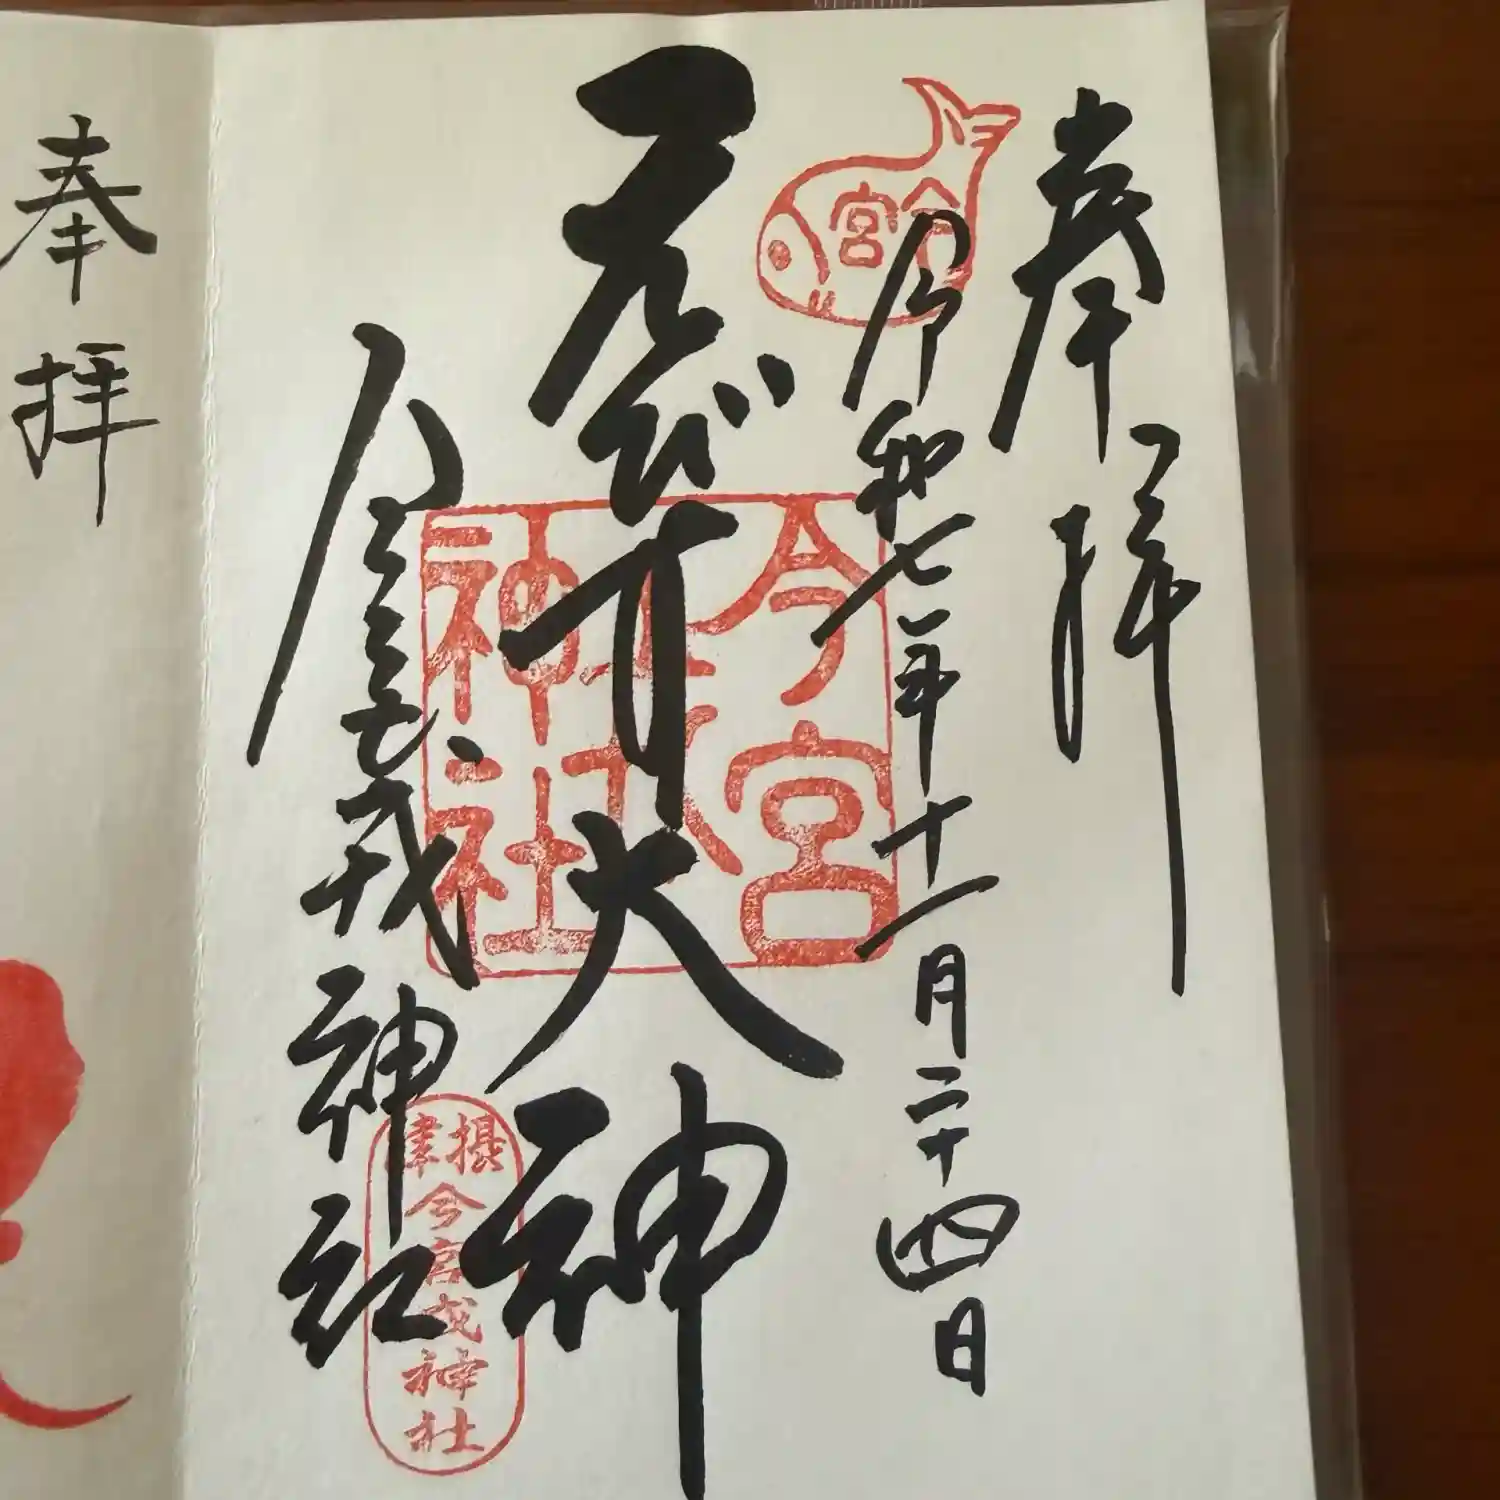 奉拝
令和七年十一月二十四日
えびす大神
今宮戎神社
今宮
今宮戎神社
摂津
今宮戎神社
奉拝